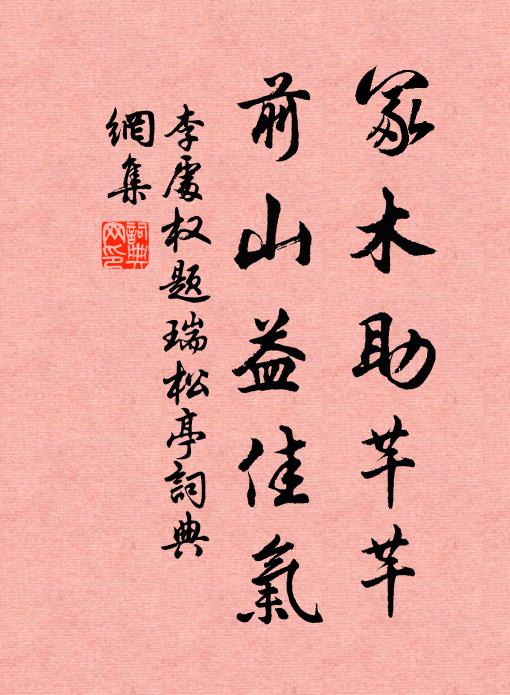 冢木助芊芊
前山益佳氣
李處权題瑞松亭詞典
網集
詞典
网印